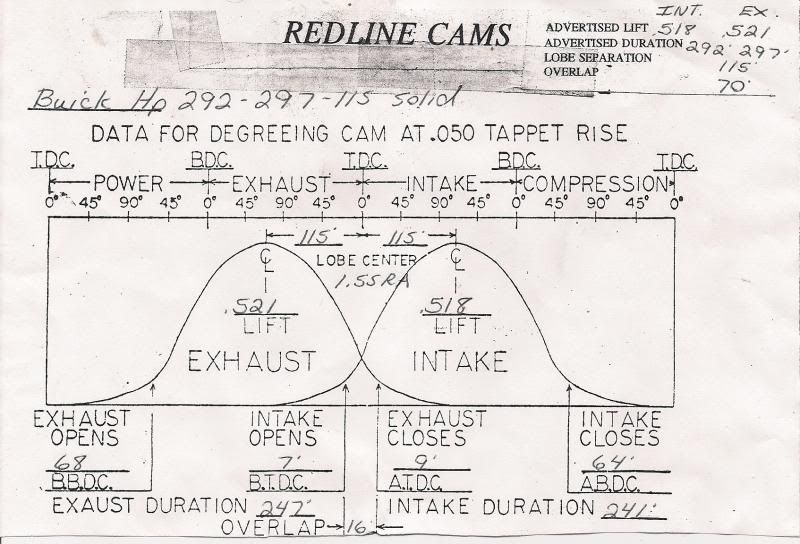 INT. EX.
REDLINE CAMS
ADVERTISED LIFT .518 .521
ADVERTISED DURATION 292° 297°
LOBE SEPARATION 115°
OVERLAP 70°
Buick Hp 292-297-115 Solid
DATA FOR DEGREEING CAM AT .050 TAPPET RISE
T.D.C. B.D.C. T.D.C. B.D.C. T.D.C.
POWER EXHAUST INTAKE COMPRESSION
0° 45° 90° 45° 0° 45° 90° 45° 0° 45° 90° 45° 0° 45° 90° 45° 0°
115° 115°
CL LOBE CENTER CL
1.55RA
.521 .518
LIFT LIFT
EXHAUST INTAKE
EXHAUST OPENS INTAKE OPENS EXHAUST CLOSES INTAKE CLOSES
68 7° 9° 64°
B.B.D.C. B.T.D.C. A.T.D.C. A.B.D.C.
EXAUST DURATION 247° INTAKE DURATION 241°
OVERLAP 16°